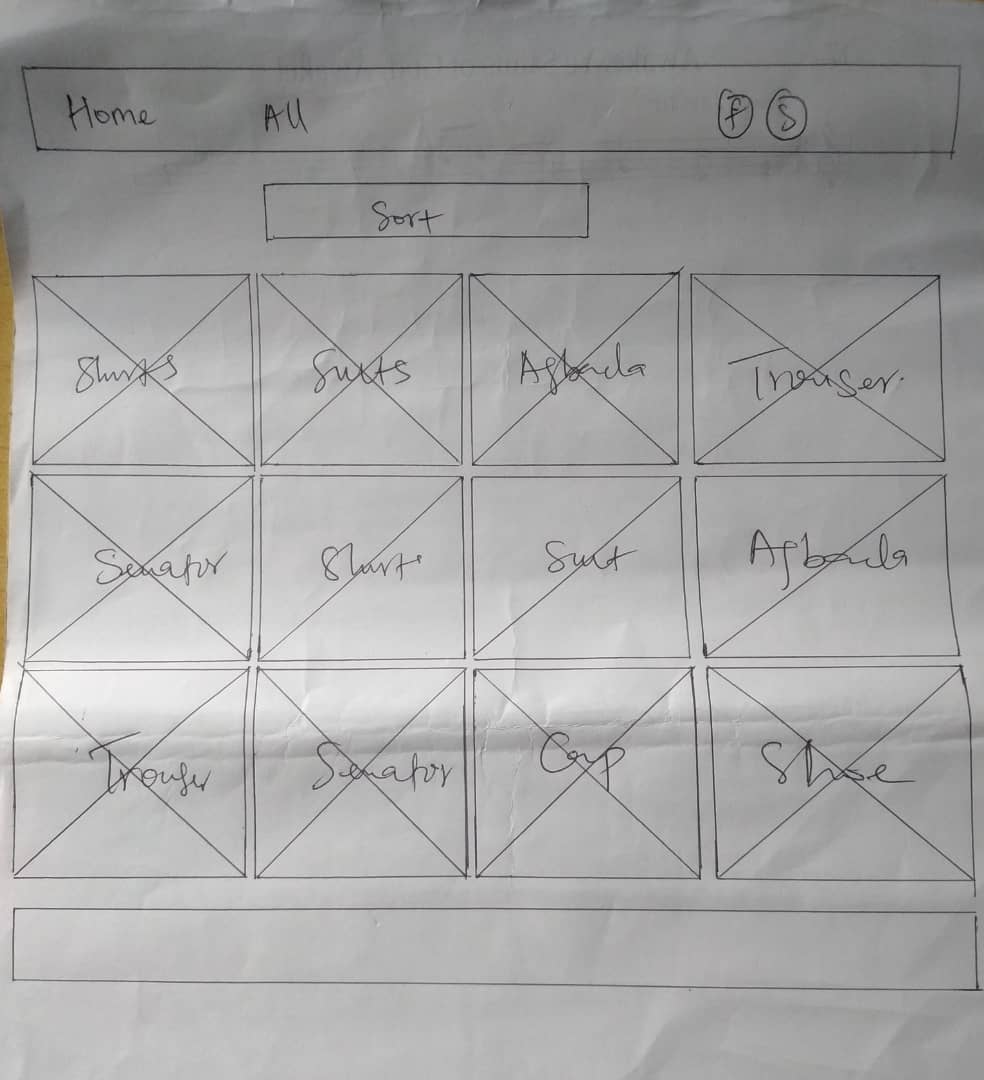 Home All F S
Sort
Shirts Suits Agbada Trouser.
Senator Shirt Suit Agbada
Trouser Senator Cap Shoe